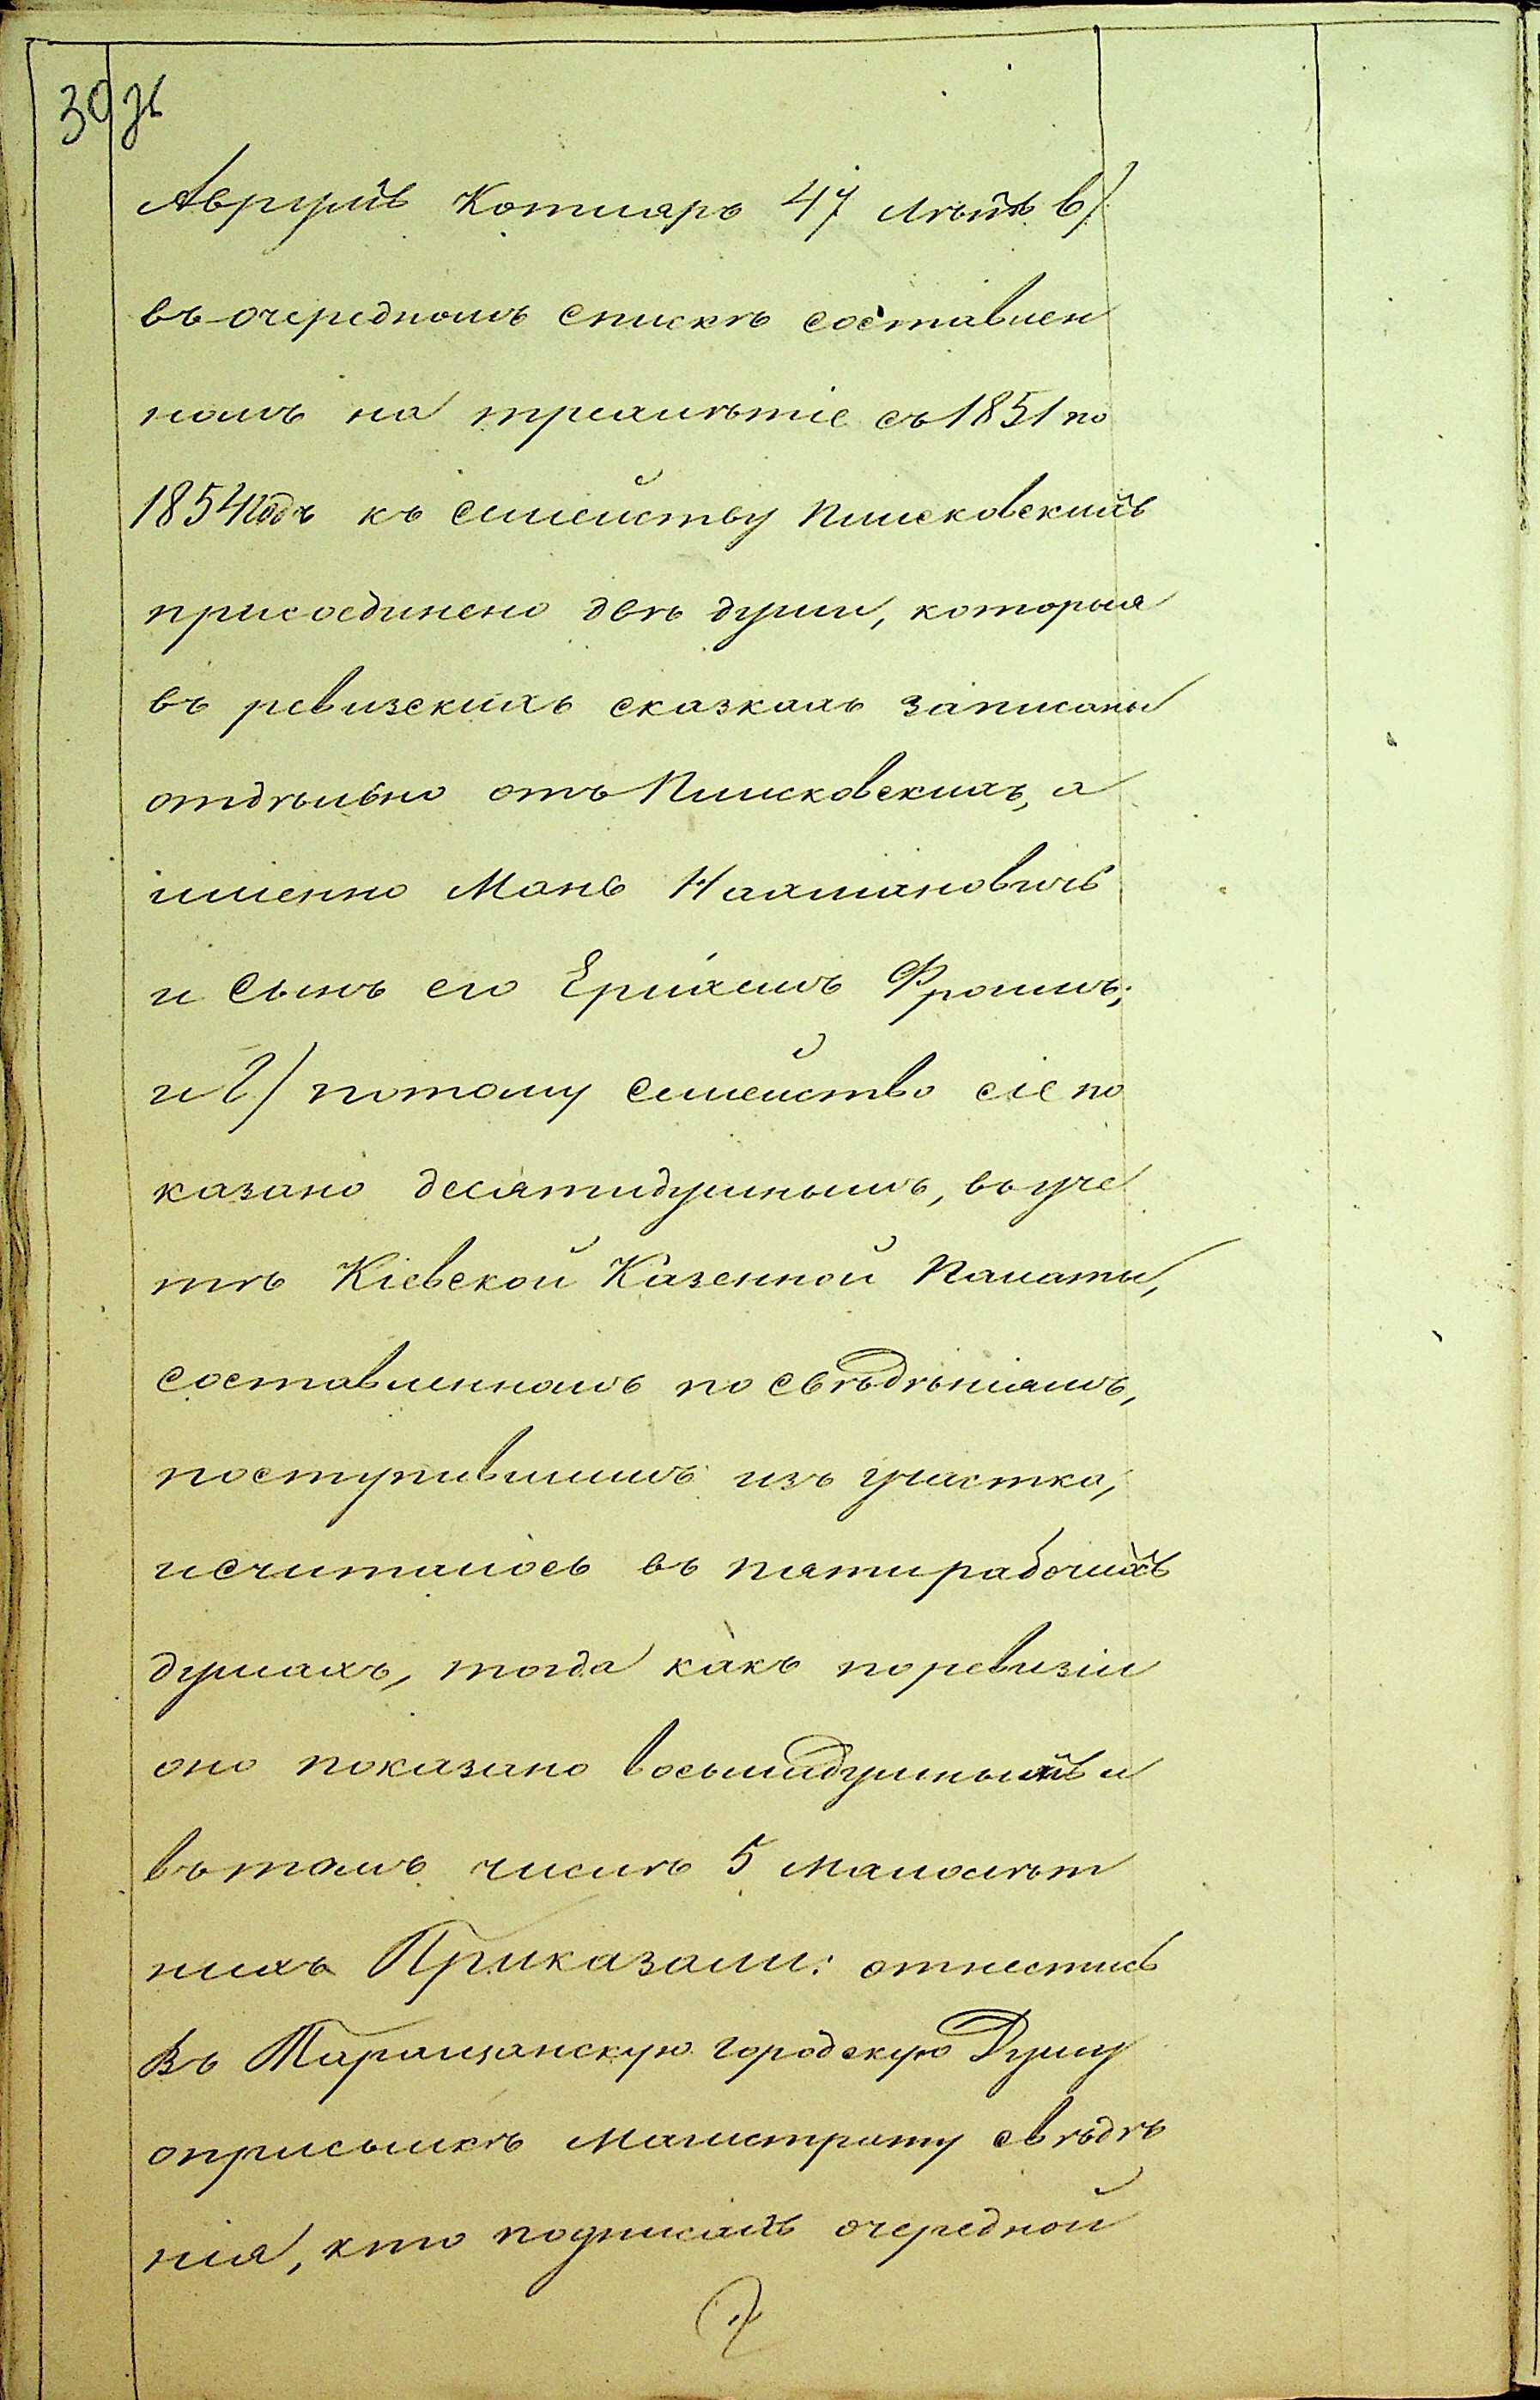 30
Аврумъ Котляръ 47 лѣтъ в/
въ очередномъ спискѣ составлен
номъ на трехлѣтіе съ 1851 по
1854 годъ къ семейству Плисковскихъ
присоединено двѣ души, которыя
въ ревизскихъ сказкахъ записаны
отдѣльно отъ Плисковскихъ, а
именно Мань Нахмановичъ
и сынъ его Фроимъ;
и г/ потому семейство сіе по
казано десятидушнымъ, въ уче
тѣ Кіевской Казенной Палаты,
составленномъ по свѣдѣніямъ,
поступившимъ изъ участка,
исчиталось въ пяти рабочихъ
душахъ, тогда какъ по ревизіи
оно показано восьмидушнымъ и
въ томъ числѣ 5 малолѣт
нихъ Приказали: отнестись
въ Таращанскую городскую Думу
о присылкѣ Магистрату свѣдѣ
нія, кто подписалъ очередной